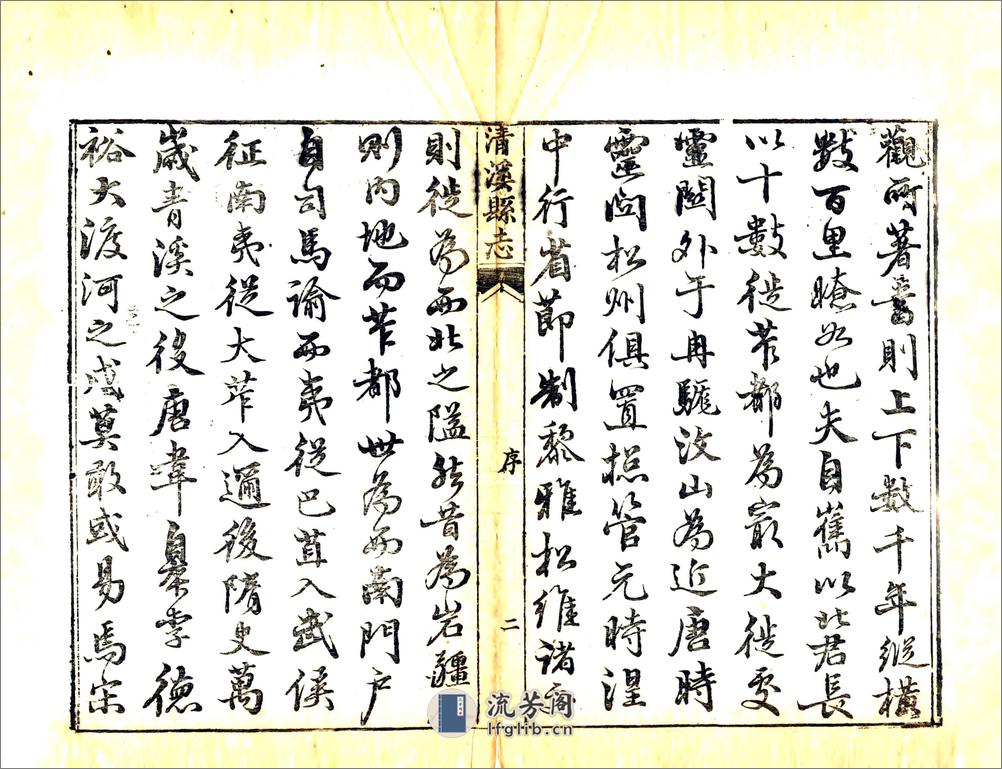 觀所著書則上下數千年縱橫
數百里瞭如也夫自嶲以北君長
以十數徙苲都為最大徙處
靈關外于冉駹汶山為近唐時
靈關松州俱置總管元時湟
中行省節制黎雅松維諸
清溪縣志
序
二
則徙為西北之隘然昔為岩疆
則內地而苲都世為西南門戶
自司馬諭西夷從巴苴入武侯
征南夷從大苲入邇後隋史萬
歲青溪之役唐韋皋李德
裕大渡河之戍莫敢或易焉宋
流芳阁
lfglib.cn